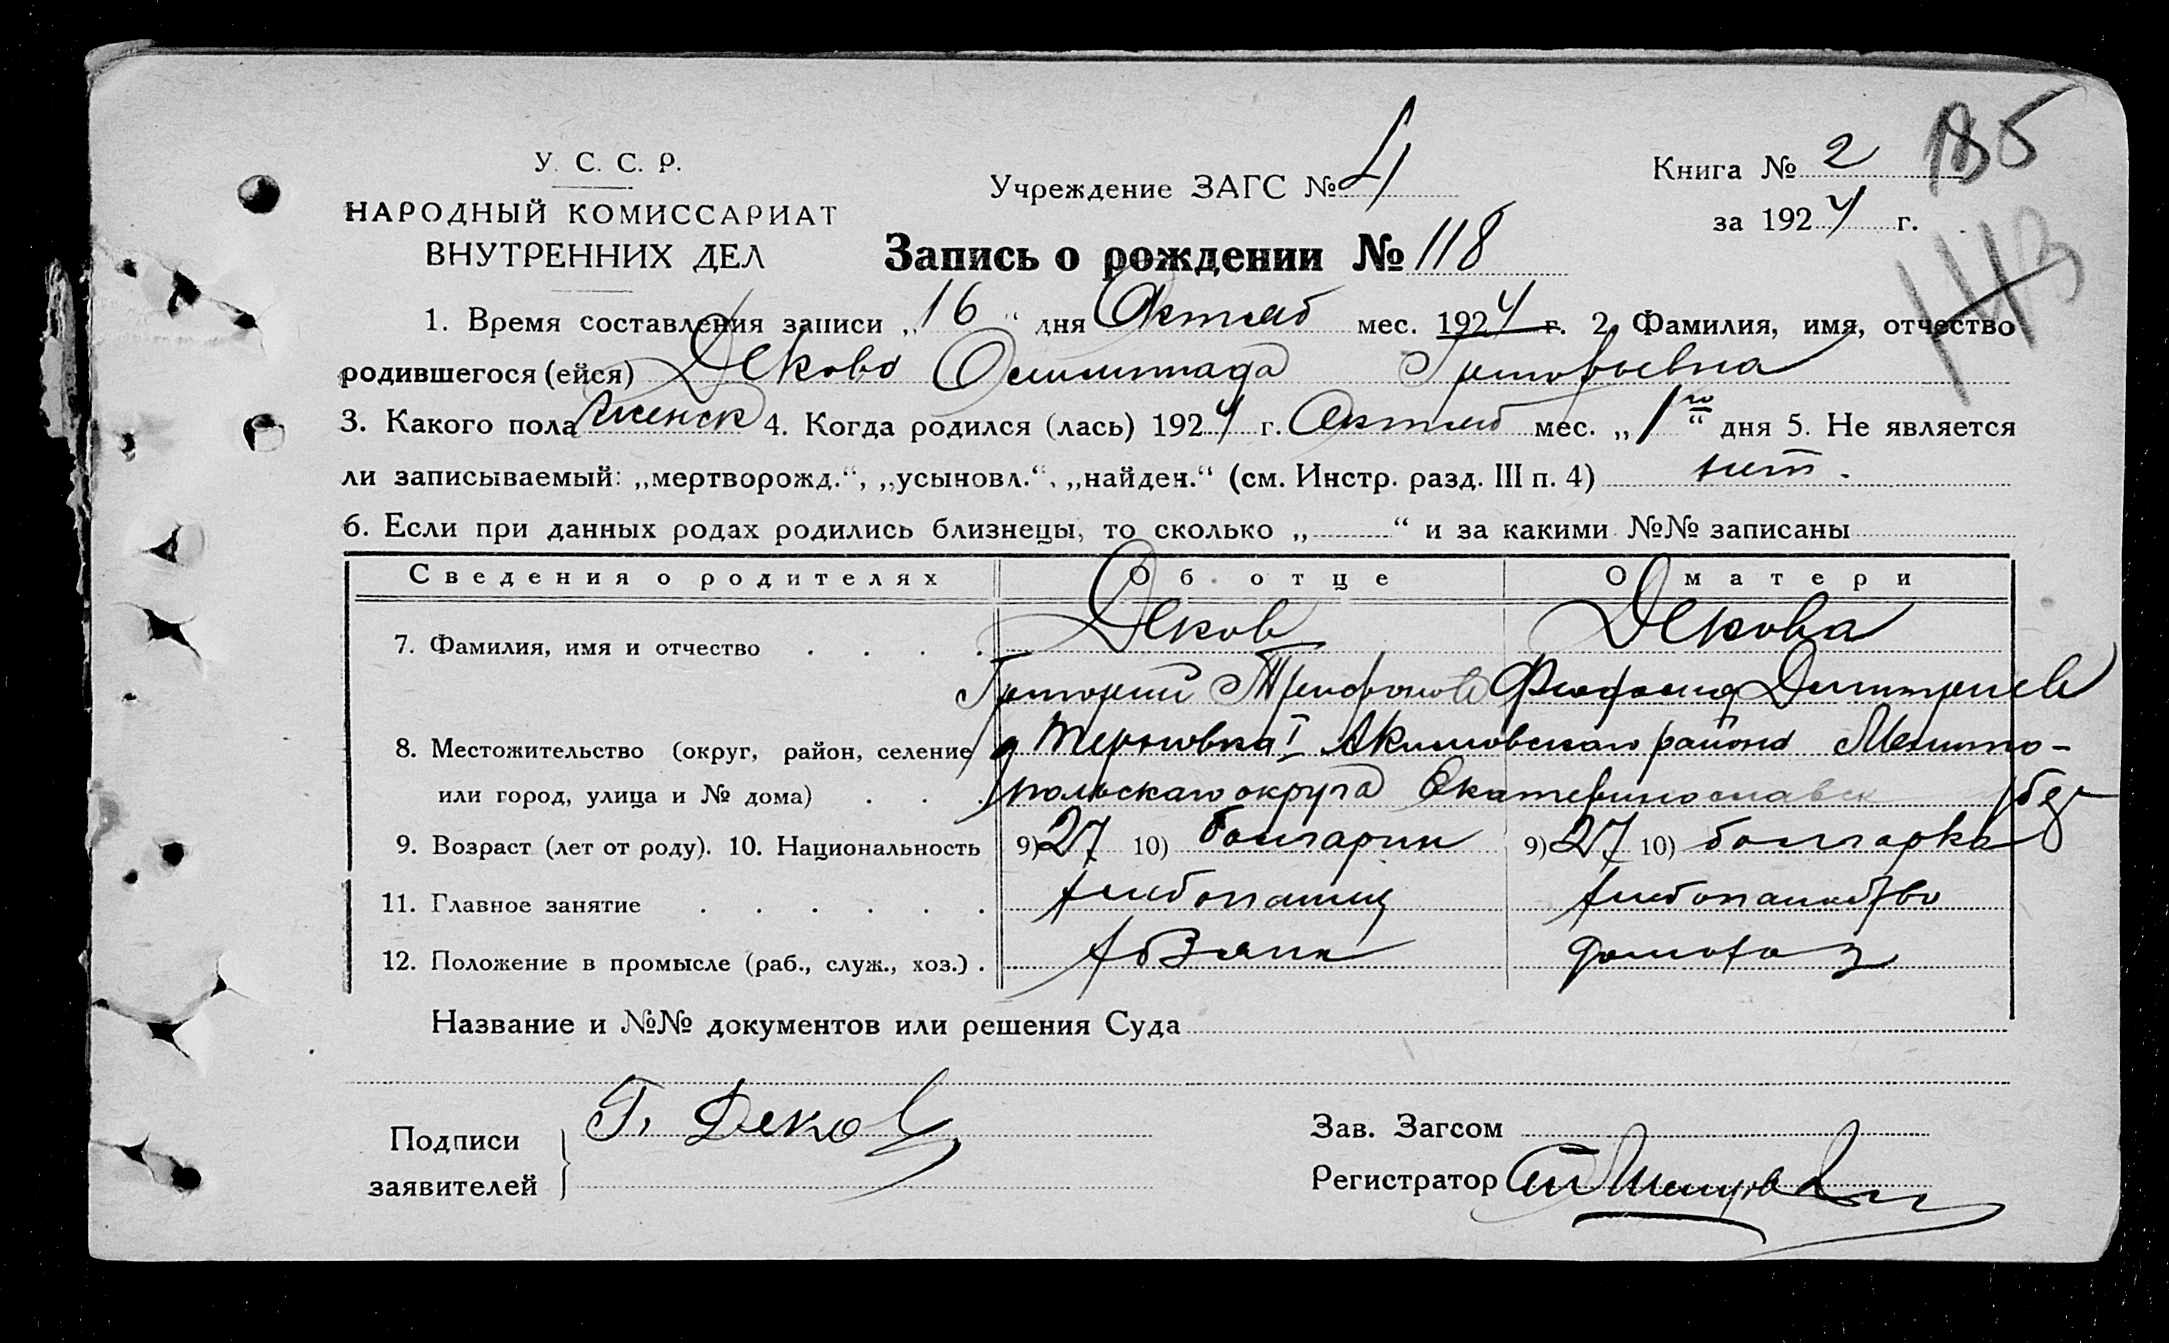 У. С. С. Р.
НАРОДНЫЙ КОМИССАРИАТ
ВНУТРЕННИХ ДЕЛ
Учреждение ЗАГС № 4
Книга № 2
за 1924 г.
186
143
Запись о рождении № 118
1. Время составления записи „16“ дня Октяб мес. 1924 г. 2. Фамилия, имя, отчество
родившегося (ейся) Декова Олимпиада Григорьевна
3. Какого пола женск 4. Когда родился (лась) 1924 г. Октяб мес. „1го“ дня 5. Не является
ли записываемый: „мертворожд.“, „усыновл.“, „найден.“ (см. Инстр. разд. III п. 4) нет.
6. Если при данных родах родились близнецы, то сколько „ “ и за какими №№ записаны
Сведения о родителях Об отце О матери
7. Фамилия, имя и отчество Деков Декова
Григорий Трифонов Феодосия Димитриев
8. Местожительство (округ, район, селение д Терновка I Акимовского района Мелито-
или город, улица и № дома) польского округа Екатеринославск губер
9. Возраст (лет от роду). 10. Национальность 9) 27 10) болгарин 9) 27 10) болгарка
11. Главное занятие хлебопашец хлебопашество
12. Положение в промысле (раб., служ., хоз.) хозяин домохоз
Название и №№ документов или решения Суда
Подписи
заявителей
Г. Деков
Зав. Загсом
Регистратор